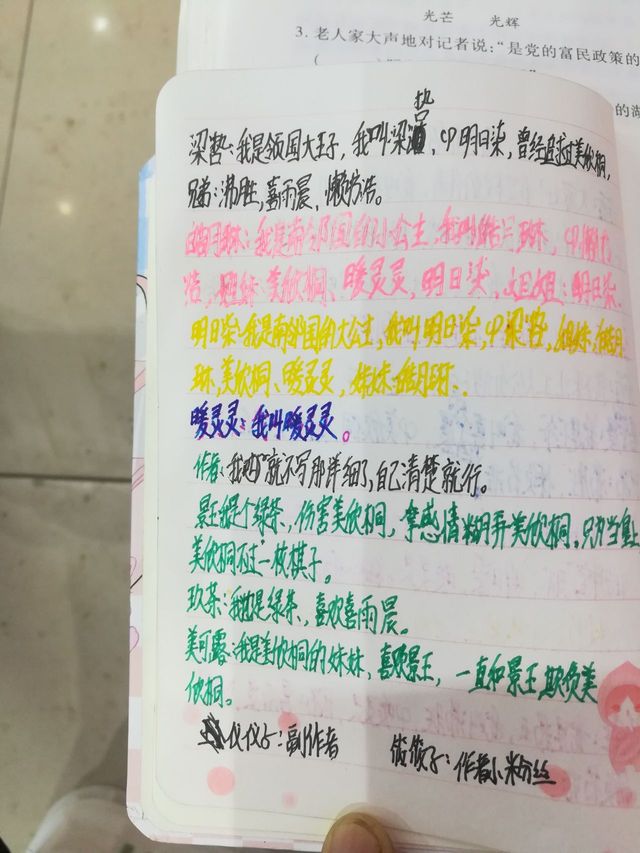 光芒 光辉
3. 老人家大声地对记者说：“是党的富民政策的
的湖
梁㘯：我是邻国大王子，我叫梁，cp明日柒，曾经追求过美欣桐，
兄弟：沸胜，喜雨晨、懒浩。
皓月琳：我是南邻国的小公主，我叫皓月琳，cp懒
浩，姐妹：美欣桐、暖灵灵，明日柒，姐姐：明日柒.
明日柒：我是南邻国的大公主，我叫明日柒，cp梁，姐妹：皓月
琳，美欣桐、暖灵灵，妹妹：皓月琳.
暖灵灵：我叫暖灵灵。
作者：我“就不写那详细了，自己清楚就行。
景王：我是个绿茶，伤害美欣桐，拿感情糊弄美欣桐，只为当皇上
美欣桐不过一枚棋子。
玖茶：我也是绿茶，喜欢喜雨晨。
美可露：我是美欣桐的妹妹，喜欢景王，一直和景王欺负美
欣桐。
仪仪子：副作者 饭饭子：作者小粉丝